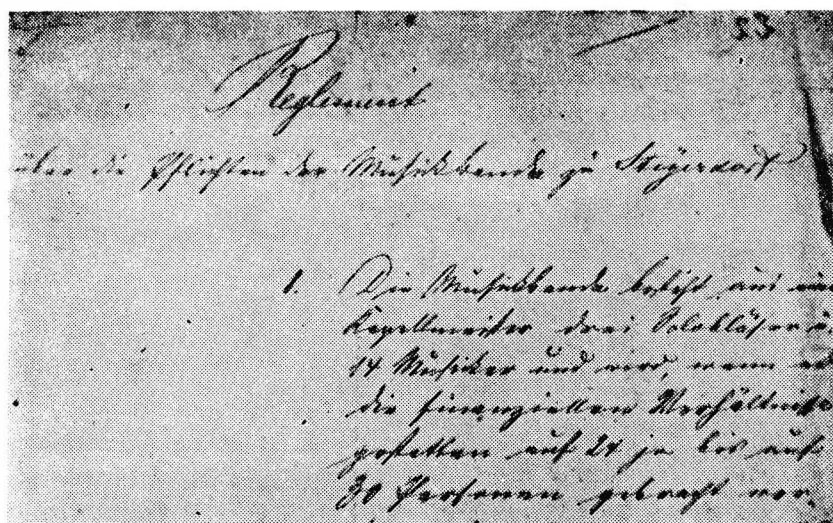 23
Reglement
über die Pflichten der Musikbande zu Steyerdorf
1. Die Musikbande besteht aus
Kapellmeister drei Solobläser
14 Musiker und wird, wenn es
die finanziellen Verhältnisse
gestatten auf 24 ja bis auf
30 Personen gebracht wer-